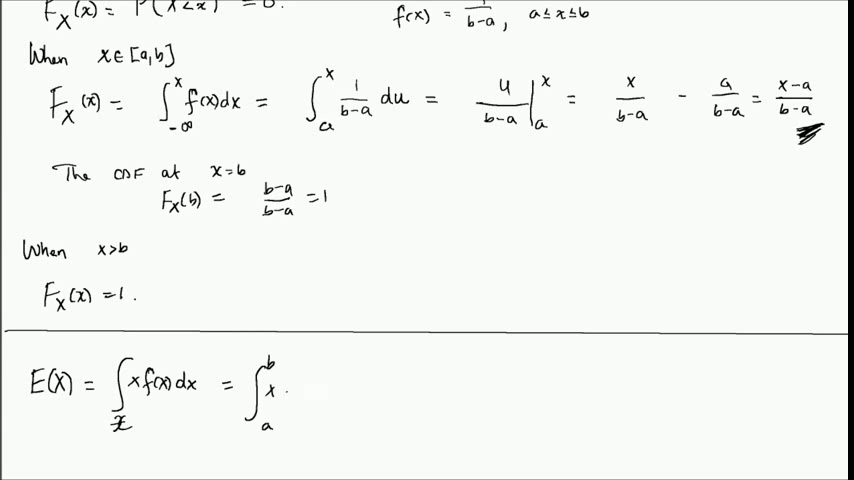 F_X(x) = P(X<x) = 0.
f(x) = 1/(b-a), a ≤ x ≤ b
When x ∈ [a,b]
F_X(x) = ∫_{-∞}^{x} f(x)dx = ∫_a^x 1/(b-a) du = u/(b-a) |_a^x = x/(b-a) - a/(b-a) = (x-a)/(b-a)
The CDF at x=b
F_X(b) = (b-a)/(b-a) = 1
When x>b
F_X(x) = 1.
E(X) = ∫_x x f(x) dx = ∫_a^b x ·